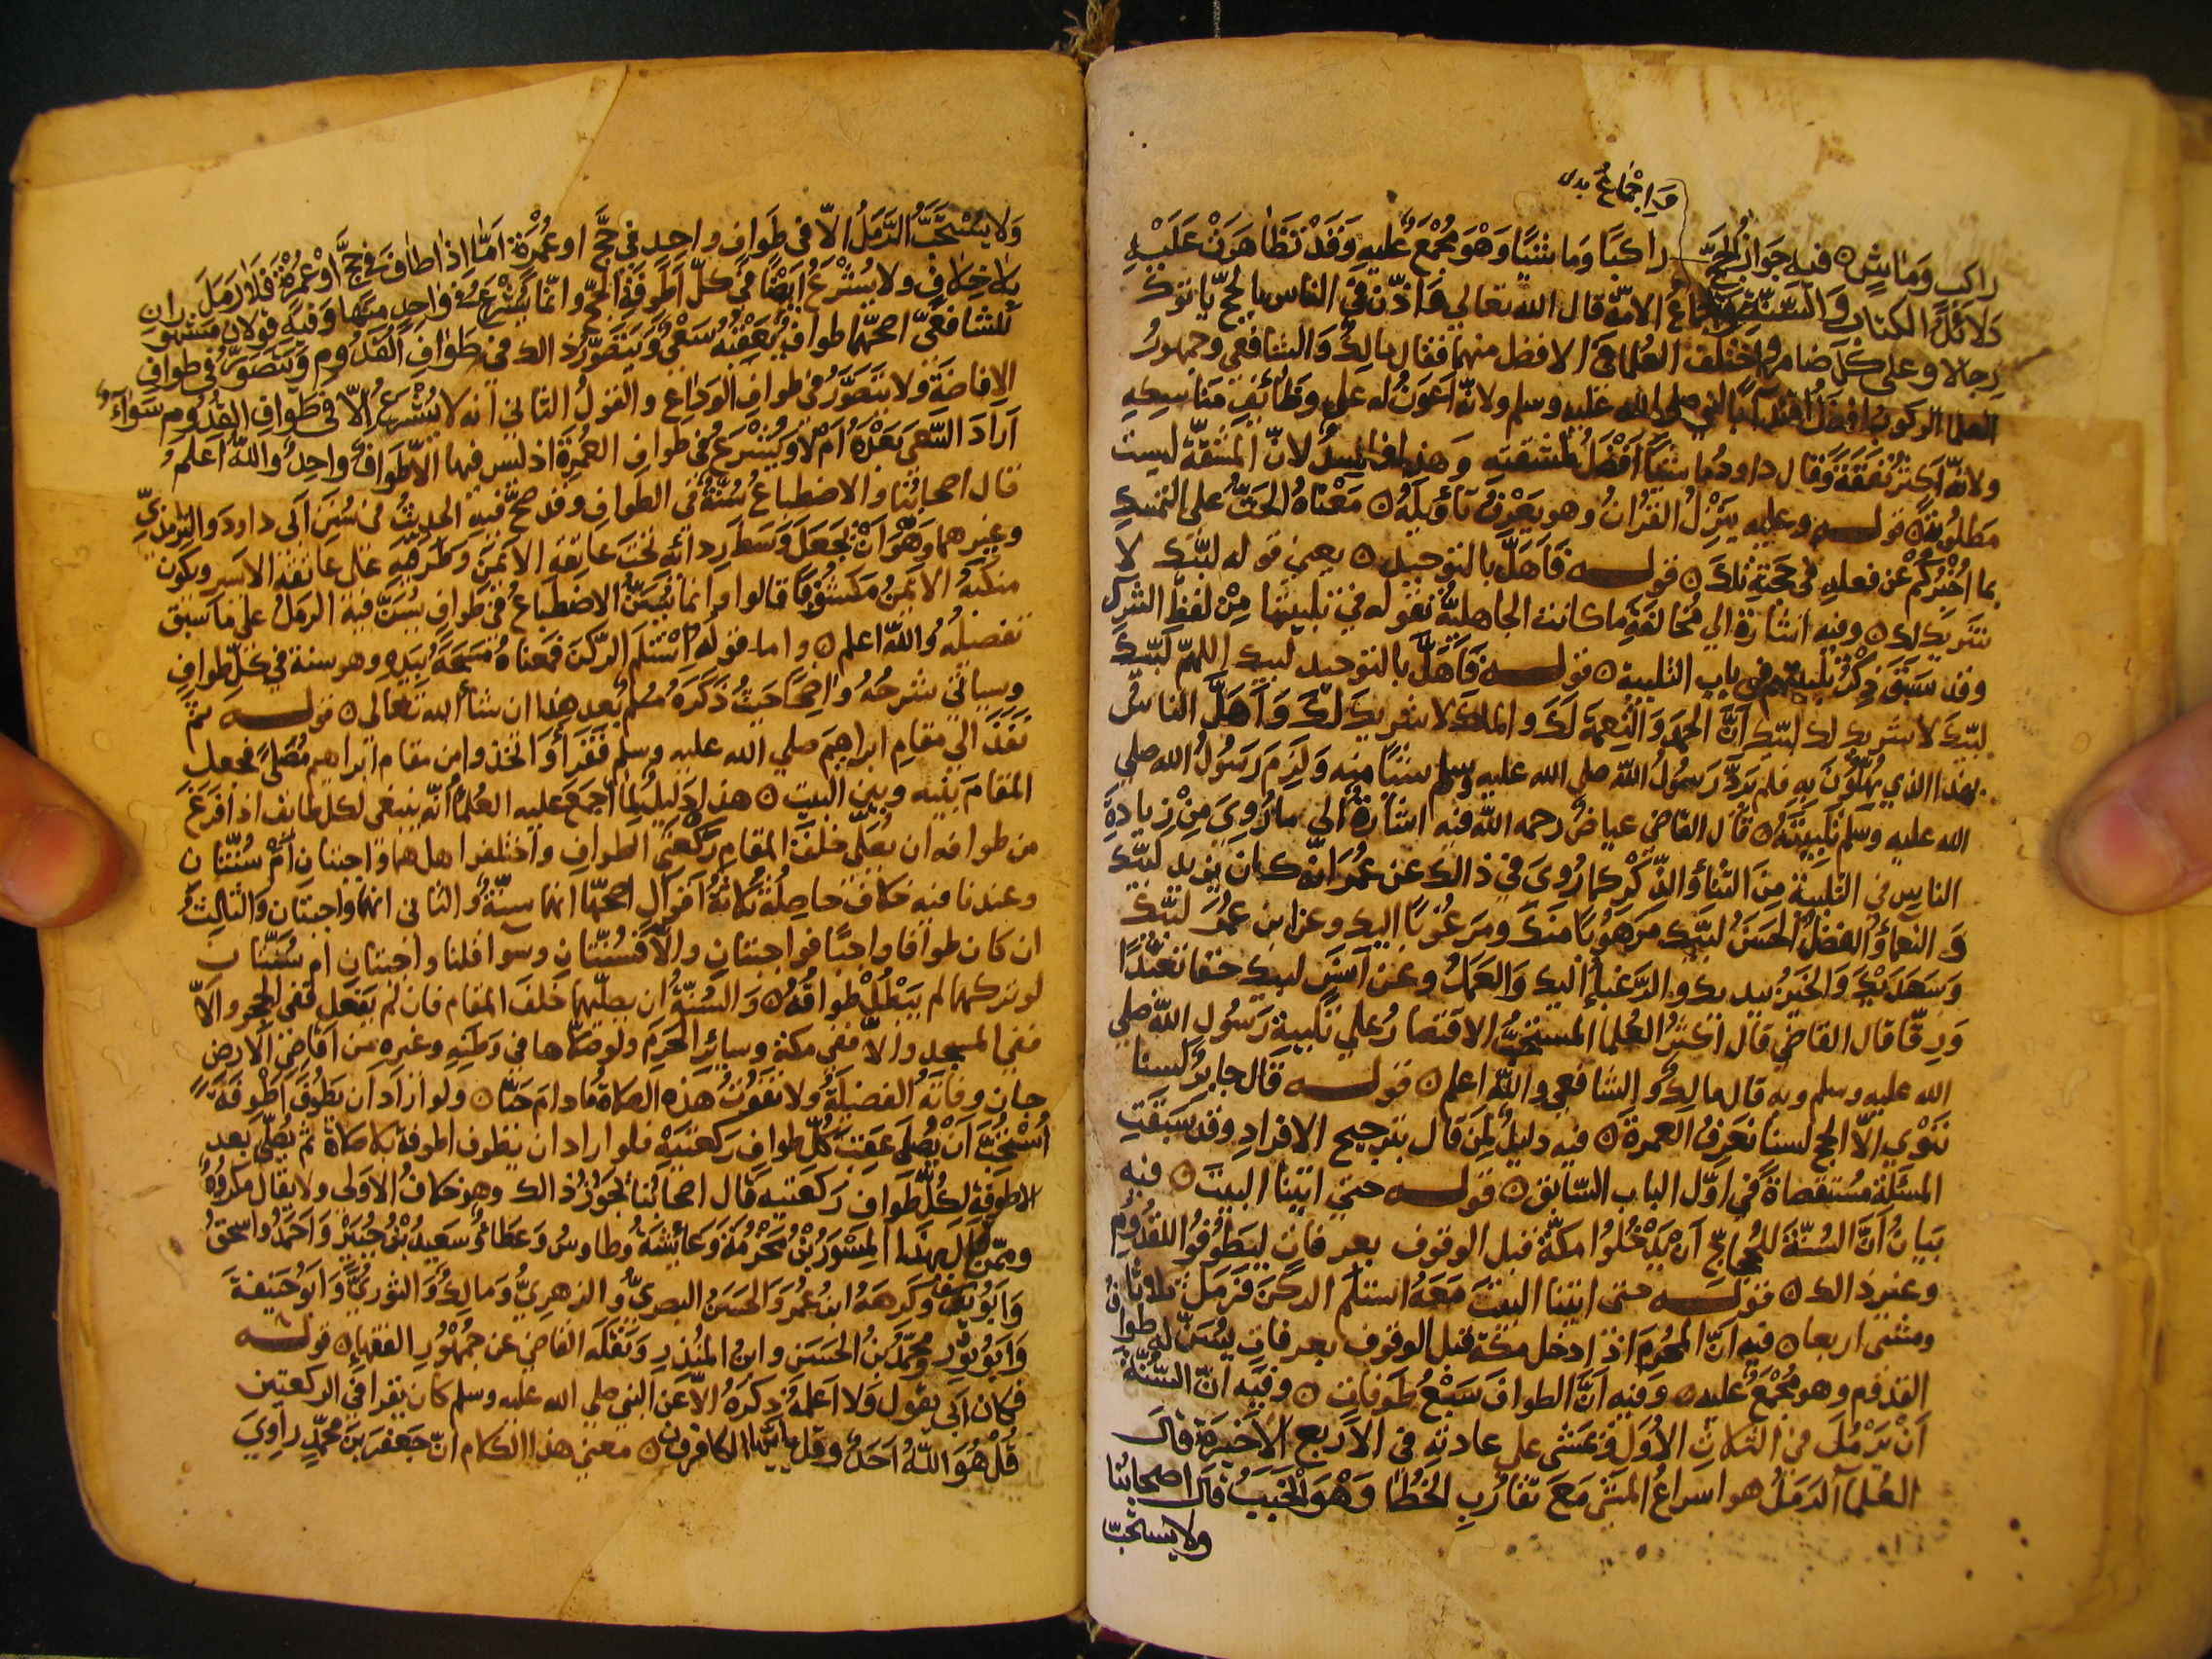 وَاِجْمَاعُ بدل
راكب وَمَاشٍ ۞ فيه جَوَازُ الحَجِّ راكبًا وَماشيًا وَهْوَ مُجْمَعٌ عليه وَقَدْ تَظَاهَرَتْ عَلَيْهِ
دَلائلُ الكتاب وَالسُّنَّة وَاجماعُ الامّة قال الله تعالى وَاذّن في الناس بالحج يأتوك
رجالا وعلى كلّ ضامر واختلف العلما في الافضل منهما فقال مالك وَالشافعي وجمهورُ
العلما الركوبُ افضلُ اقتداءً بالنبي صلى الله عليه وسلم ولانّه اَعوَنُ له على وَظَائِفِ مَناسِكِهِ
ولانّه اَكثرُ نَفَقَةً وَقال داود مَاشيًا اَفْضَلُ لمشقّتهِ وَهذا فاسِدٌ لانّ المشقّة ليست
مَطلُوبَة ۞ قولـه وعليه ينزلُ القرانُ وهو يَعْرِفُ تأويلَهُ ۞ مَعْنَاهُ الحَثُّ على التمسّك
بما اُخْبِرُكُمْ عن فعله في حَجّتِهِ تلك ۞ قولـه فَاَهَلَّ بالتوحيد ۞ يعني قوله لبّيك لا
شريك لك ۞ وفيه اشارة الي مُخالفَةِ ما كانت الجاهليّةُ تقوله في تلبيتها مِنْ لفظِ الشرك
وقد سَبَقَ ذِكْرُ تلبيتهم في باب التلبية ۞ قولـه فَاَهَلَّ بالتوحيد لبيك اللهمّ لبّيك
لبّيكَ لا شريك لك لبّيك اَنَّ الحمدَ وَالنِّعمة لَكَ والملك لا شريك لكَ وَاَهَلَّ الناسُ
بهذا الذي يُهلّونَ بهِ فلم يَرُدَّ رَسولُ الله صلي الله عليه وسلم شيئًا منه وَلَزِمَ رَسُولُ الله صلي
الله عليه وسَلم تلبيتَهُ ۞ قال القاضي عياضٌ رحمه الله فيه اشارةٌ الي ما رُوِيَ مِنْ زيادةِ
الناس في التلبية مِنَ الثناءِ وَالذّكْر كما رُوِيَ في ذالك عن عُمَرَ انّه كان يزيد لبّيك
ذَا النعماءِ وَالفضلِ الحَسَنِ لبّيك مَرهَوبًا منكَ وَمَرغُوبًا اليك وعن ابن عمرَ لبّيكَ
وَسَعدَيْكَ وَالخَيرُ بيديك وَالرَّغباءُ اليك وَالعَمَلُ وعن انسٍ لبيك حقا تعبُّدًا
وَرِقّا قال القاضي قال اكثرُ العُلما المستحَبُّ الاقتصارُ علي تلبيةِ رَسُول الله صلي
الله عليه وسلم وبه قال مالِكٌ وَالشافعي والله اعلم ۞ قولـه قال جابرٌ لَسنا
نَنْوي الّا الحج لسنا نَعْرِفُ العمرةَ ۞ فيه دليلٌ لِمَن قال بترجيح الافراد وقد سَبَقَتِ
المسئلة مُستقصاةً في اوّل الباب السّابق ۞ قولـه حتى اتينا البيت ۞ فيه
بَيَانُ اَنَّ السُّنّةَ للحجاجِّ اَنْ يَدْخُلُوا مكّةَ قبل الوقوف بعرفات ليَطُوفُوا للقُدُومِ
وغير ذالك ۞ قولـه حتى اتينا البيتَ مَعَهُ استلم الركنَ فرَمَلَ ثلاثا
ومشى اربعا ۞ فيه اَنّ المحْرِمَ اذا دخل مكّة قبل الوقوف بعرفاتٍ يُسَنُّ له طواف
القدوم وهو مُجْمَعٌ عليه ۞ وَفيه اَنَّ الطوافَ سَبْعُ طَوفاتٍ ۞ وفيهِ انّ السُّنّةَ
اَنْ يَرْمُلَ في الثلاثِ الاُوَلِ وَيمشى علي عادتِهِ فى الاَرْبَعِ الاَخيرَةِ قال
العُلماءُ الرَمَلُ هو اسراعُ المشي مَعَ تقارُبِ الخُطَا وَهْوَ الخَبَبُ قال اصحابُنا
ولا يستحَبّ
وَلا يُسْتَحَبُّ الرَّمَلُ الّا فى طَوافٍ واحِدٍ فى حَجٍّ او عُمْرةٍ امّا اِذا طافَ فى حجٍّ اوْ عُمرةٍ فَلا رَمَلَ
بلا خِلافٍ ولا يُشْرَعُ ايضًا في كلّ اَطوفَةِ الحجِّ وانّما يُشْرَعُ في واحِدٍ منها وَفيهِ قولان مشهوران
للشافعيّ اصحّهما طوافٌ يُعْقِبُهُ سَعْيٌ وَيَتَصَوَّرُ ذالك في طَوَافِ القُدُومِ وَيَتَصَوَّرُ في طوافِ
الافاضَةِ ولا يَتَصَوَّرُ في طوافِ الوَدَاع والقولُ الثاني انه لا يُشْرَعُ اِلّا في طَوَافِ القُدُوم سَوَآءٌ
اَرَادَ السَّعيَ بَعْدَهُ اَمْ لا وَيُشْرَعُ في طوافِ العُمرة اذ ليس فيها الّا طَوَافٌ واحِدٌ وَاللهُ اَعلمُ
قال اصحابُنا والاضطباعُ سُنّةٌ في الطَوافِ وقد صَحَّ فيه الحديثُ في سُنَنِ اَبي داودَ وَالترمذيّ
وغيرهما وَهْوَ اَنْ يَجعَلَ وَسَطَ رِدائِهِ تحتَ عاتقه الايمَنِ وَطَرَفَيْهِ على عاتقه الاَيسر ويكون
منكبُهُ الايمنُ مَكشُوفًا قالوا وَانّما يُسَنُّ الاضطباعُ في طوافٍ يُسَنُّ فيه الرمَلُ على ما سَبَقَ
تفصيلُه وَاللهُ اعلم ۞ واما قولُه اسْتَلَمَ الرّكنَ فمعناه مَسَحَهُ بيَدِهِ وهو سنة في كلّ طوافٍ
وسياتي شرحُهُ واضِحًا حَيثُ ذَكَرَهُ مُسْلِمٌ بُعد هذا ان شاء الله تعالى ۞ قولـه ثمّ
نَفَذَ الى مقام ابراهيمَ صلي الله عليه وسلم فَقَرأ وَاتّخذوا من مقام ابراهيم مُصَلًّى فجعل
المقامَ بَيْنَهُ وبينَ البيت ۞ هذا دَليلٌ لما اَجْمَعَ عليه العُلماءُ انّه ينبغي لكل طائف اذا فَرَغَ
من طوافه ان يُصَلّي خلفَ المقامِ رَكْعَتَيِ الطوافِ واَختلفوا هل هما وَاجبتانِ اَمْ سُنّتانِ
وعندنا فيه خلافٌ حاصِلُهُ ثلاثةُ اَقوالٍ اصحّها انهما سنّةٌ وَالثاني انهما واجبتان والثالِثُ
ان كان طوافا واجبًا فواجبتانِ والّا فسُنّتانِ وسوا قلنا واجبتانِ ام سُنّتان
لو تركهما لم يَبْطُلْ طوافُهُ ۞ وَالسُنّةُ ان يصلّيهما خلفَ المقام فان لم يفعَل ففي الحِجر والّا
ففي المسجد والّا ففي مكة وسائر الحَرَمِ ولو صَلّاها في وَطَنِهِ وغيره من اَقَاصي الارض
جاز وفاتَهُ الفضيلَةُ ولا تفوتُ هَذه الصلاة مادامَ حَيًّا ۞ ولو ارادَ ان يَطُوفَ اَطوِفَةً
اسْتُحِبَّ اَنْ يُصَلّيَ عَقِبَ كُلِّ طوافٍ رَكعَتَيْهِ فلو اراد ان يطوف اطوفَةً بلا صَلاةٍ ثمّ يُصَلّي بعد
الاطوفةِ لِكُلِّ طَوافٍ رَكعتيه قال اصحابُنا يَجُوزُ ذالك وهو خلافُ الاَولى ولا يُقالُ مكرُوهٌ
ومِمّنْ قال بهذا المِسْوَرُ بْنُ مَخْرَمَةَ وَعَائِشَةُ وطاوسٌ وَعَطاءٌ وَسَعيدُ بْنُ جُبَيْرٍ وَاَحمَدُ واسحقُ
وَابُو يُوسُف وكَرهَهُ ابنُ عمرَ وَالحَسَنُ البصريُّ وَالزهريُّ وَمَالِكٌ وَالثوريُّ وَابُو حَنيفةَ
وَابُو ثَوْرٍ ومحمّدُ بنُ الحَسَنِ وابنُ المنذِرِ وَنَقَلَهُ القاضي عن جُمْهُورِ الفقهاءِ ۞ قولـه
فكان ابي يقول وَلا اعلمُهُ ذكَرَهُ الّا عَن النبي صلي الله عليه وسلم كان يقرا في الركعتين
قُلْ هُوَ اللهُ اَحَدٌ وقل يايّها الكافرون ۞ معنى هذا الكلام انّ جَعفَرَ بنَ محمّدٍ رَاوِيَ